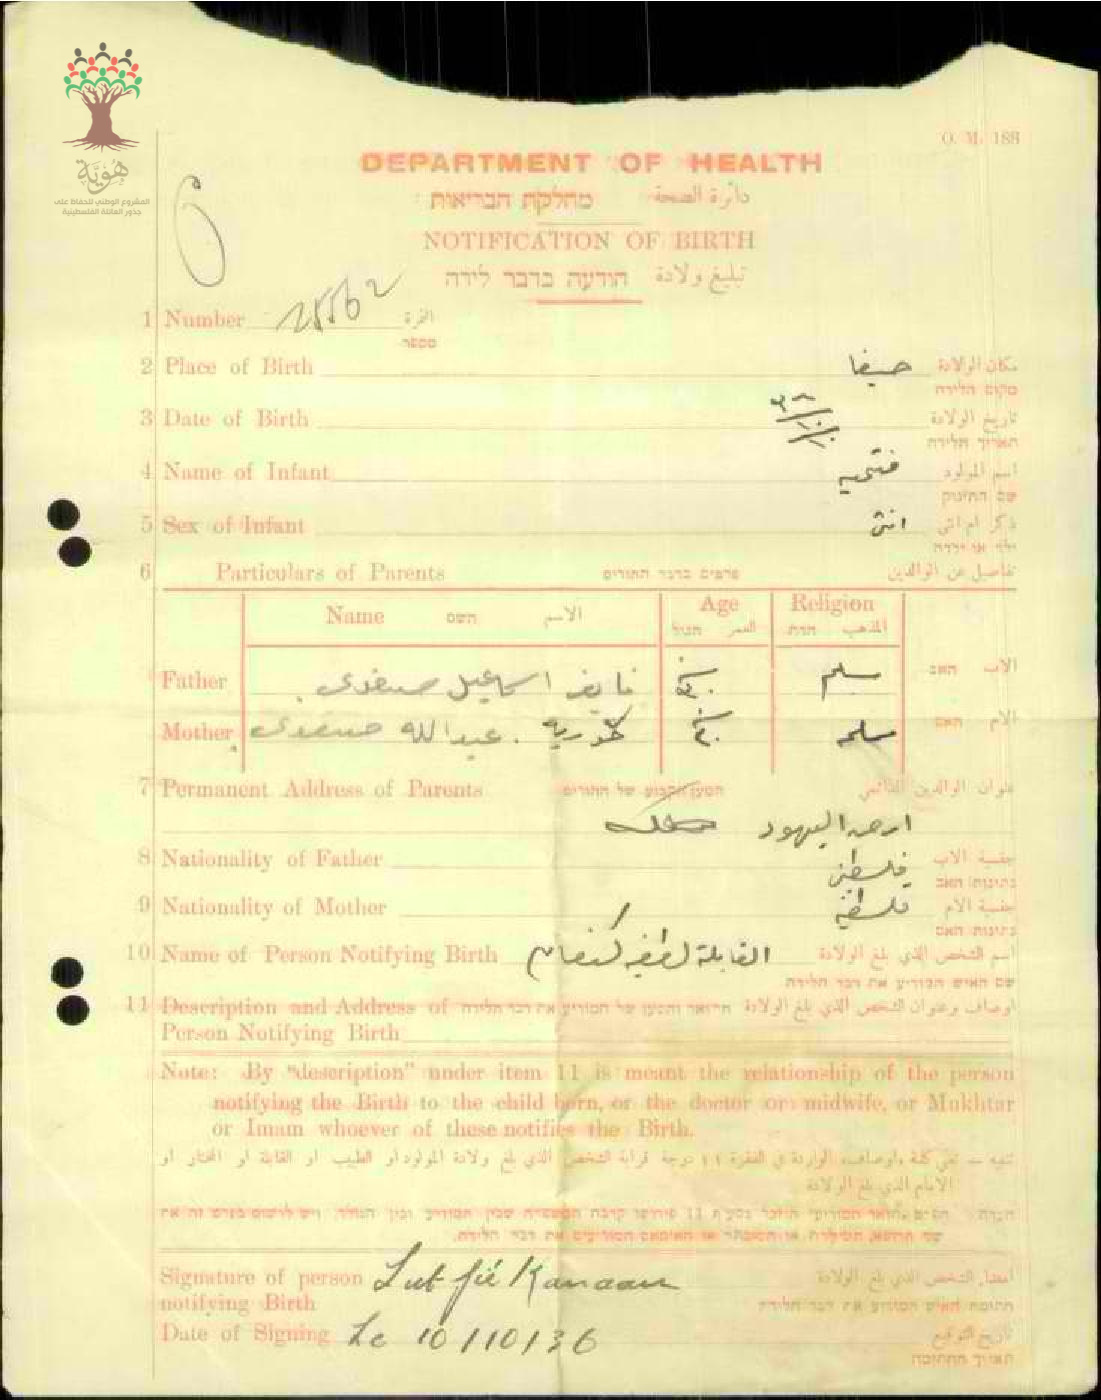 هُوِيَّة
المشروع الوطني للحفاظ على
جذور العائلة الفلسطينية
O. M. 188
DEPARTMENT OF HEALTH
דائرة الصحة מחלקת הבריאות
NOTIFICATION OF BIRTH
تبليغ ولادة הודעה בדבר לידה
1 Number 25562 النمرة
מספר
2 Place of Birth حيفا مكان الولادة
מקום הלידה
3 Date of Birth تاريخ الولادة
תאריך הלידה
4 Name of Infant فتحيه اسم المولود
שם התינוק
5 Sex of Infant انثى ذكر ام انثى
ילד או ילדה
6 Particulars of Parents פרטים בדבר ההורים تفاصيل عن الوالدين
Name השם الاسم Age Religion
العمر הגיל المذهب הדת
Father فايز اسماعيل صفدي مسلم الاب האב
Mother عبدالله صفدي مسلمه الام האם
7 Permanent Address of Parents המען הקבוע של ההורים عنوان الوالدين الدائمي
ارض اليهود
8 Nationality of Father فلسطيني جنسية الاب
נתינות האב
9 Nationality of Mother جنسية الام
נתינות האם
10 Name of Person Notifying Birth القابلة لطفيه كنعان اسم الشخص الذي بلغ الولادة
שם האיש המודיע את דבר הלידה
11 Description and Address of התואר והמען של המודיע את דבר הלידה اوصاف وعنوان الشخص الذي بلغ الولادة
Person Notifying Birth
Note: By "description" under item 11 is meant the relationship of the person
notifying the Birth to the child born, or the doctor or midwife, or Mukhtar
or Imam whoever of these notifies the Birth.
تنبيه — تعني كلمة «اوصاف» الواردة في الفقرة ١١ درجة قرابة الشخص الذي بلغ ولادة المولود او الطبيب او القابلة او المختار او
الامام الذي بلغ الولادة
Signature of person Lutfié Kanaan امضاء الشخص الذي بلغ الولادة
notifying Birth חתימת האיש המודיע את דבר הלידה
Date of Signing Le 10/10/36 تاريخ التوقيع
תאריך החתימה